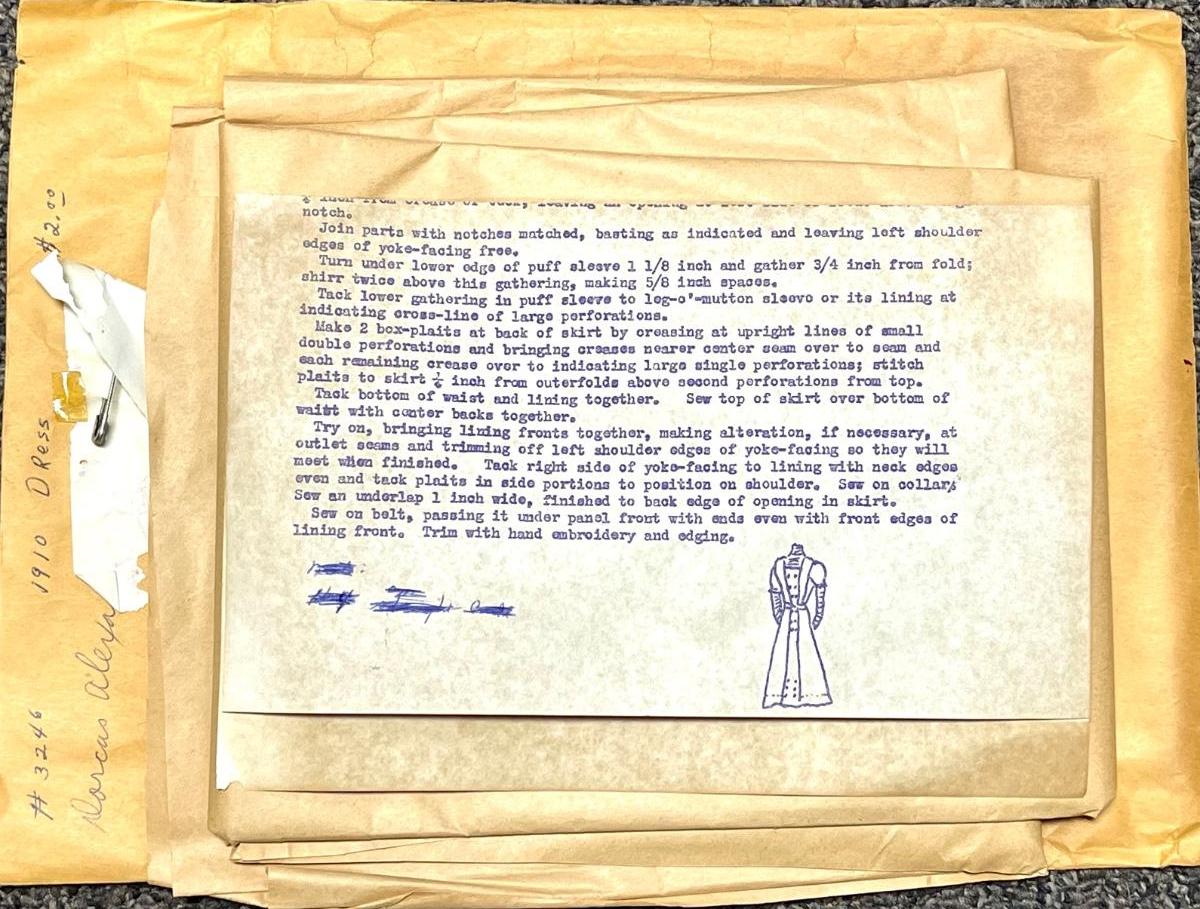 notch.
Join parts with notches matched, basting as indicated and leaving left shoulder
edges of yoke-facing free.
Turn under lower edge of puff sleeve 1 1/8 inch and gather 3/4 inch from fold;
shirr twice above this gathering, making 5/8 inch spaces.
Tack lower gathering in puff sleeve to leg-o'-mutton sleeve or its lining at
indicating cross-line of large perforations.
Make 2 box-plaits at back of skirt by creasing at upright lines of small
double perforations and bringing creases nearer center seam over to seam and
each remaining crease over to indicating large single perforations; stitch
plaits to skirt inch from outerfolds above second perforations from top.
Tack bottom of waist and lining together. Sew top of skirt over bottom of
waist with center backs together.
Try on, bringing lining fronts together, making alteration, if necessary, at
outlet seams and trimming off left shoulder edges of yoke-facing so they will
meet when finished. Tack right side of yoke-facing to lining with neck edges
even and tack plaits in side portions to position on shoulder. Sew on collar.
Sew an underlap 1 inch wide, finished to back edge of opening in skirt.
Sew on belt, passing it under panel front with ends even with front edges of
lining front. Trim with hand embroidery and edging.
# 3246 1910 DRess $2.00
Dorcas